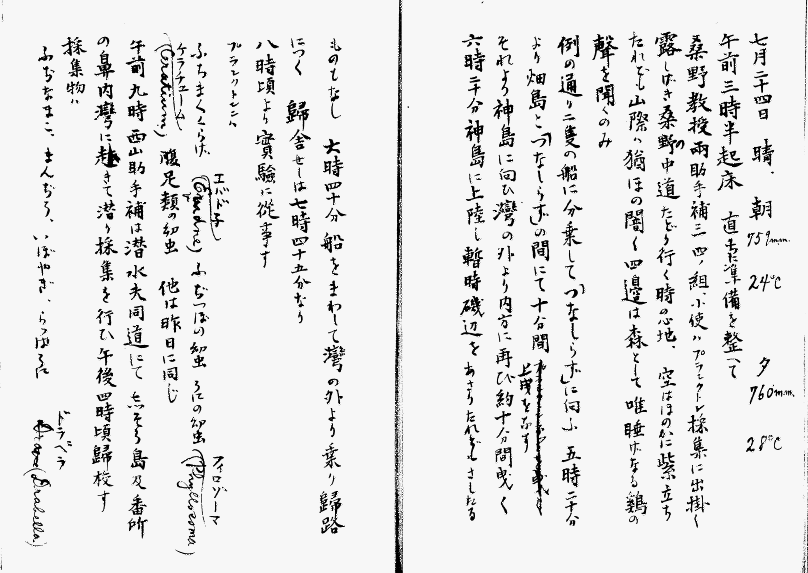 七月二十四日 晴、朝 759m.m. 24°C 夕 760m.m. 28°C
午前三時半起床 直ちに準備を整へて
桑野教授両助手補三四ノ組、小使ハプランクトン採集に出掛く
露しげき桑野の中道たどり行く時の心地、空はほのかに紫立ち
たれども山際ハ猶ほの闇く四邊は森として唯睡げなる鶏の
聲を聞くのみ
例の通り二隻の船に分乗して「つなしらず」に向ふ 五時二十分
より畑島と「つなしらず」の間にて十分間
上曳をなす
それより神島に向ひ湾の外より内方に再び約十分間曳く
六時二十分神島に上陸し暫時磯辺をあさりたれどもさしたる
ものもなし 六時四十分船をまわして湾の外より乗り歸路
につく 歸舎せしは七時四十五分なり
八時頃より實驗に從事す
プランクトン
ふちまくくらげ エバドネ (Evadne) ふぢつぼの幼虫 幼虫 フィロゾーマ (Phyllozoma)
ケラチューム (Ceratium) 腹足類の幼虫 他は昨日に同じ
午前九時西山助手補は潜水夫同道にて 島及番所
の鼻内湾に赴きて潜り採集を行ひ午後四時頃歸校す
採集物ハ
ふぢなまこ、まんぢう、いぼやぎ、 ドラベラ (Drabella)